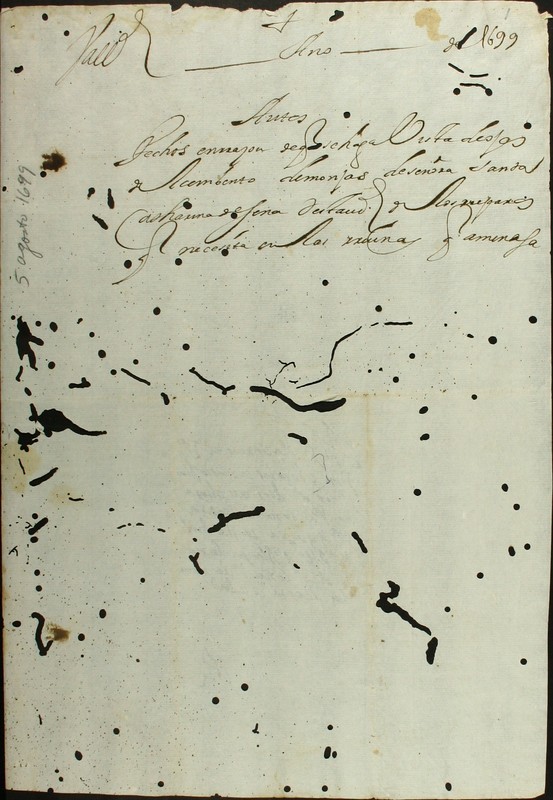 Vallid
Año de 1699
Autos
fechos en razon de q se haga Vista de ojos
de el combento de monjas de señra Santa
Catharina de sena de esta ciud. de los reparos
q necesita en las ruinas q amenasa
5 agosto 1699